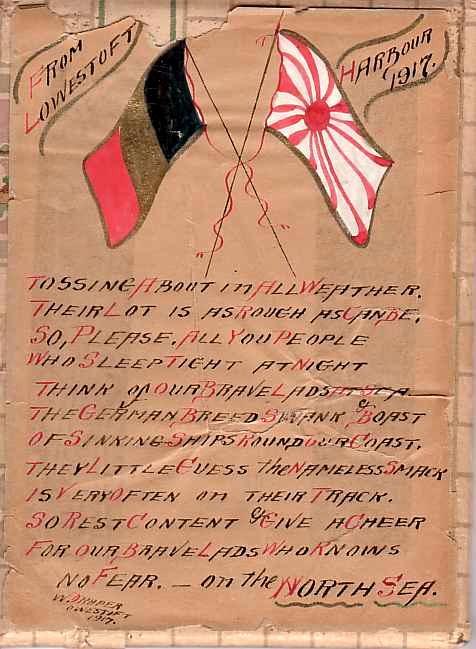 FROM LOWESTOFT
HARBOUR 1917.
TOSSING ABOUT IN ALL WEATHER.
THEIR LOT IS AS ROUGH AS CAN BE.
SO, PLEASE. ALL YOU PEOPLE
WHO SLEEP TIGHT AT NIGHT
THINK of OUR BRAVE LADS AT SEA
THE GERMAN BREED SWANK & BOAST
OF SINKING SHIPS ROUND OUR COAST.
THEY LITTLE GUESS the NAMELESS SMACK
IS VERY OFTEN ON THEIR TRACK.
SO REST CONTENT & GIVE A CHEER
FOR OUR BRAVE LADS WHO KNOWS
NO FEAR. — on the NORTH SEA.
W. DRAPER
LOWESTOFT
1917.